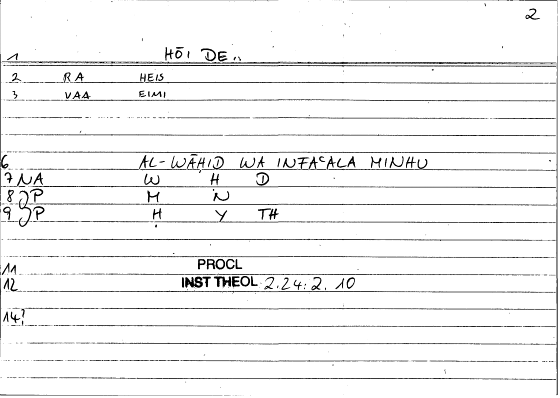 2
1 HŌI DE..
2 RA HEIS
3 VAA EIMI
6 AL-WĀḤID WA INFAʿALA MINHU
7 NA W Ḥ D
8 JP M N
9 JP Ḥ Y TH
11 PROCL
12 INST THEOL 2.24:2.10
14?